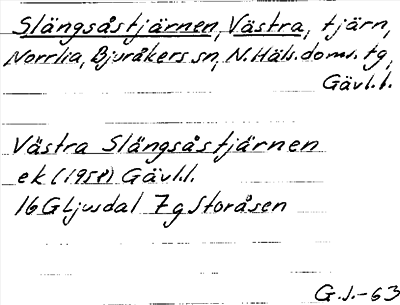 Slängsåstjärnen, Västra, tjärn,
Norrlia, Bjuråkers sn, N. Häls. doms. tg,
Gävl. l.
Västra Slängsåstjärnen
ek (1958) Gävl.l.
16G Ljusdal 7g Storåsen
G.J.-63